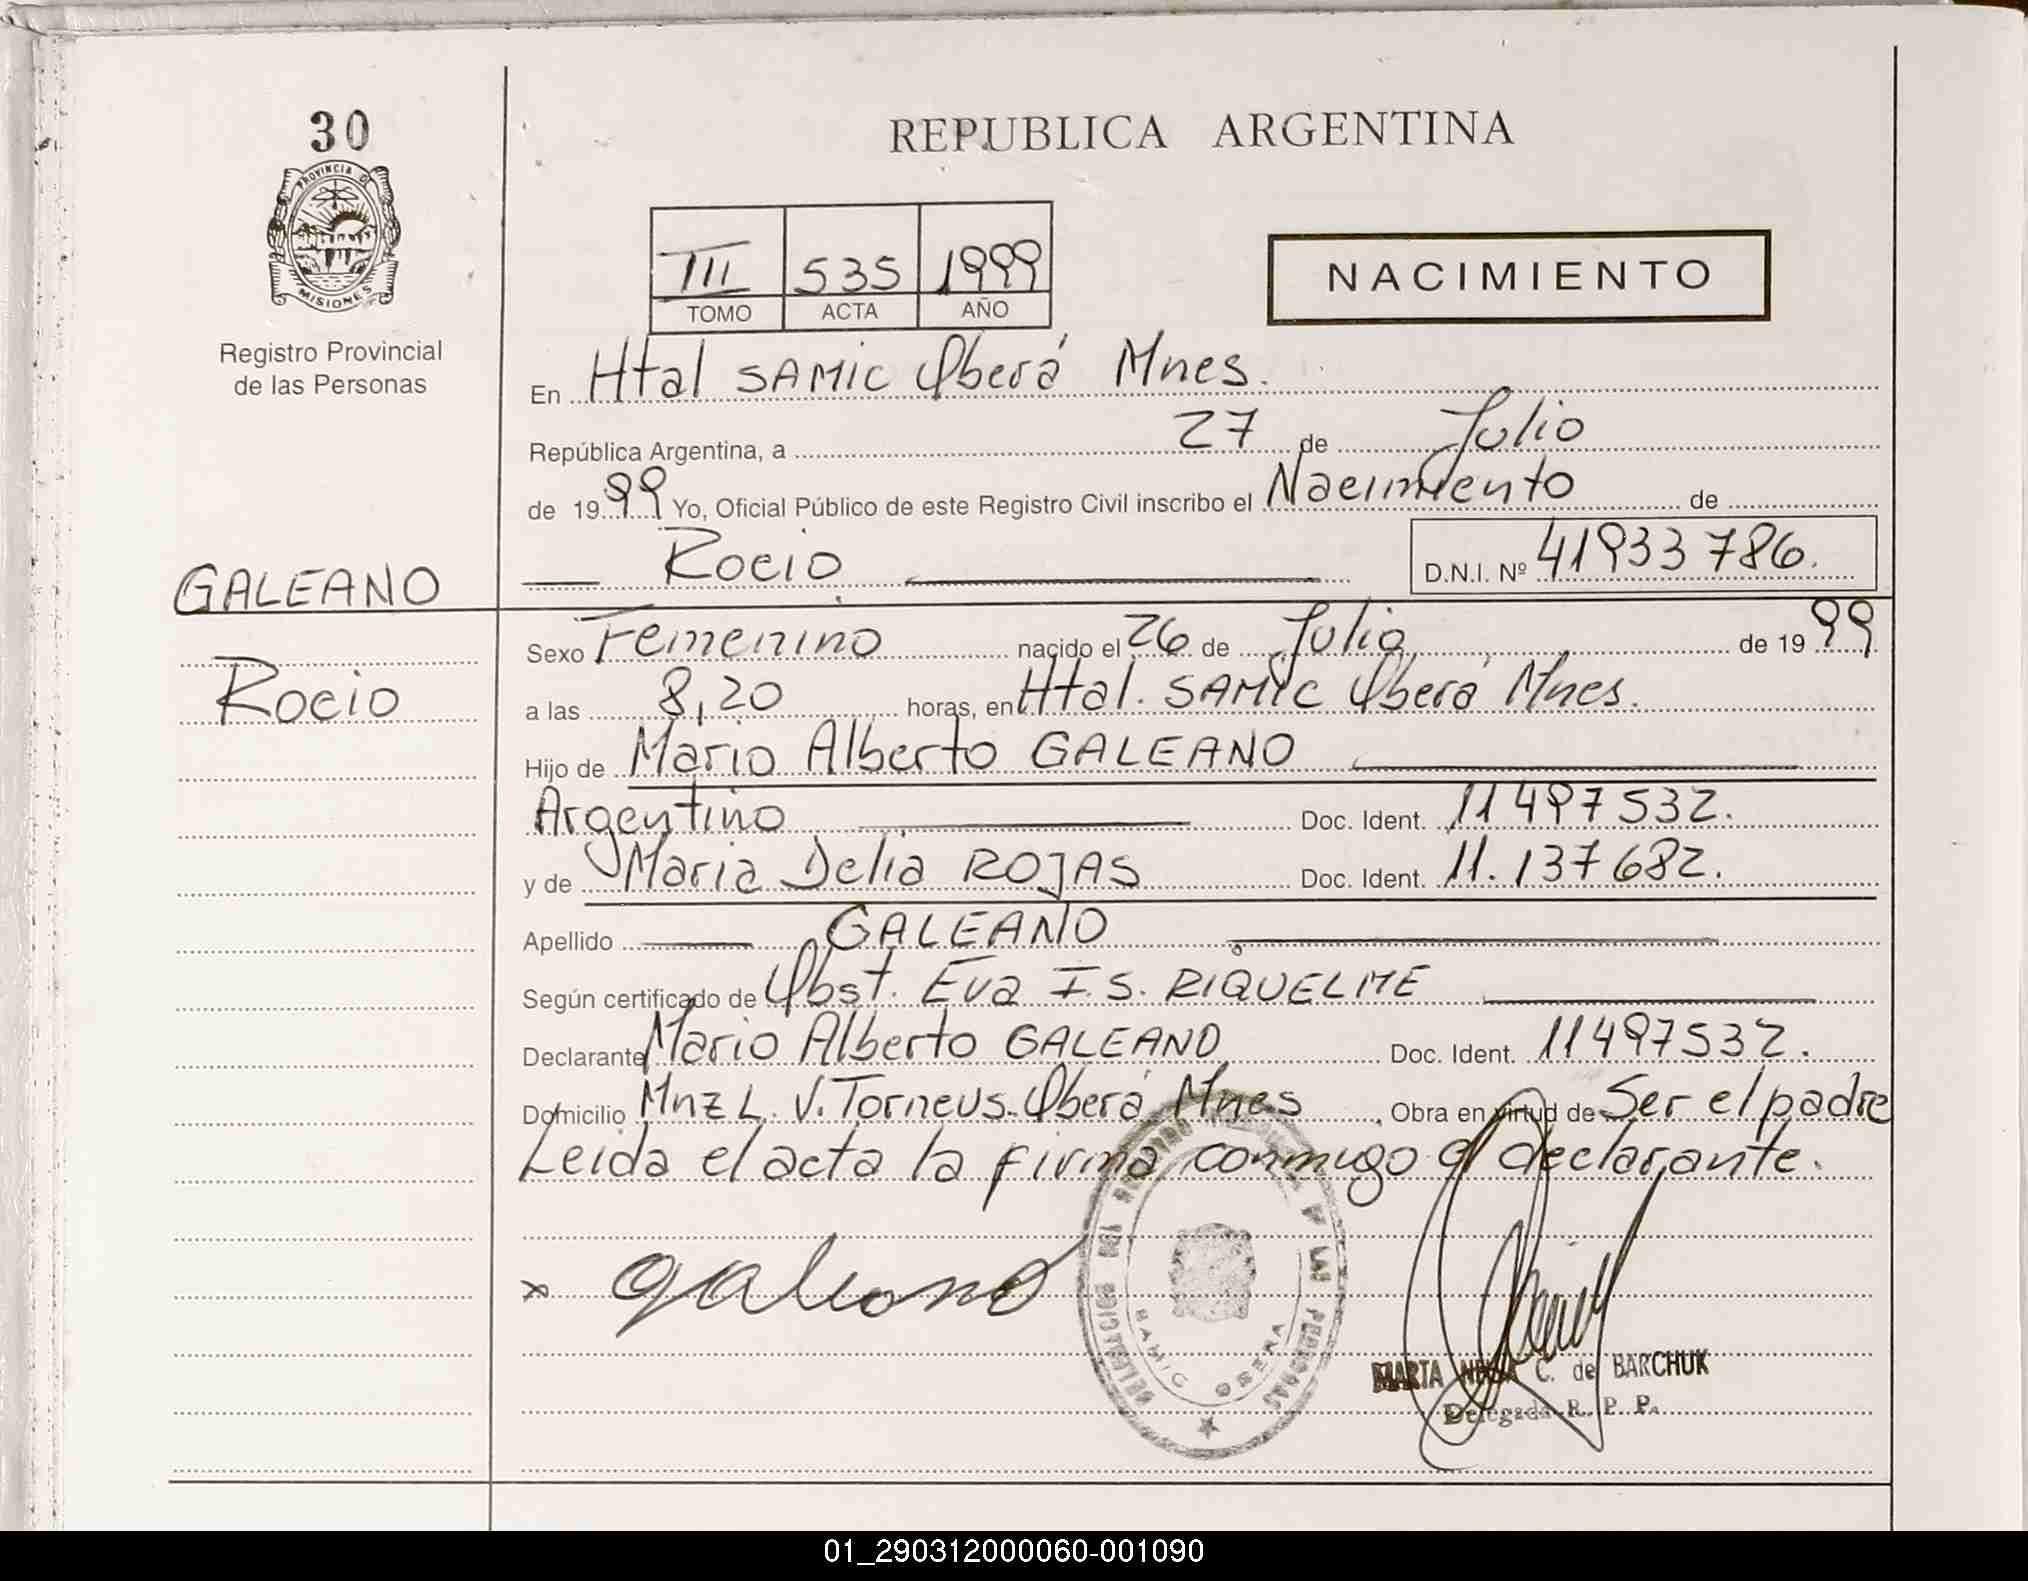 30
PROVINCIA DE
MISIONES
Registro Provincial
de las Personas
GALEANO
Rocio
REPUBLICA ARGENTINA
III 535 1999
TOMO ACTA AÑO
NACIMIENTO
En Htal SAMIC Oberá Mnes.
República Argentina, a 27 de Julio
de 1999 Yo, Oficial Público de este Registro Civil inscribo el Nacimiento de
Rocio D.N.I. Nº 41933786.
Sexo Femenino nacido el 26 de Julio de 1999
a las 8,20 horas, en Htal. SAMIC Oberá Mnes.
Hijo de Mario Alberto GALEANO
Argentino Doc. Ident. 11497532.
y de Maria Delia ROJAS Doc. Ident. 11.137682.
Apellido GALEANO
Según certificado de Obst. Eva I.S. RIQUELME
Declarante Mario Alberto GALEANO Doc. Ident. 11497532.
Domicilio Mnz L. V. Torneus. Oberá Mnes, Obra en virtud de Ser el padre
Leida el acta la firma conmigo el declarante.
x Galeano
DELEGACION DEL REGISTRO PROVINCIAL DE LAS PERSONAS
SAMIC OBERA
MARTA C. de BARCHUK
Delegada R. P. P.
01_290312000060-001090